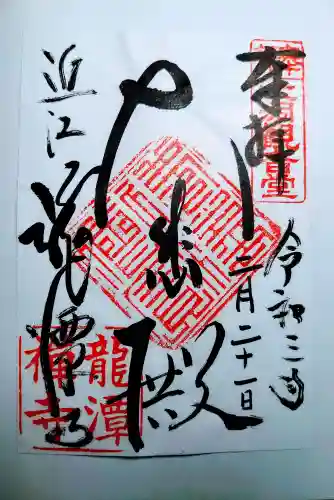 奉拝
令和三年
三月二十一日
大悲殿
近江龍潭寺
龍潭
禅寺